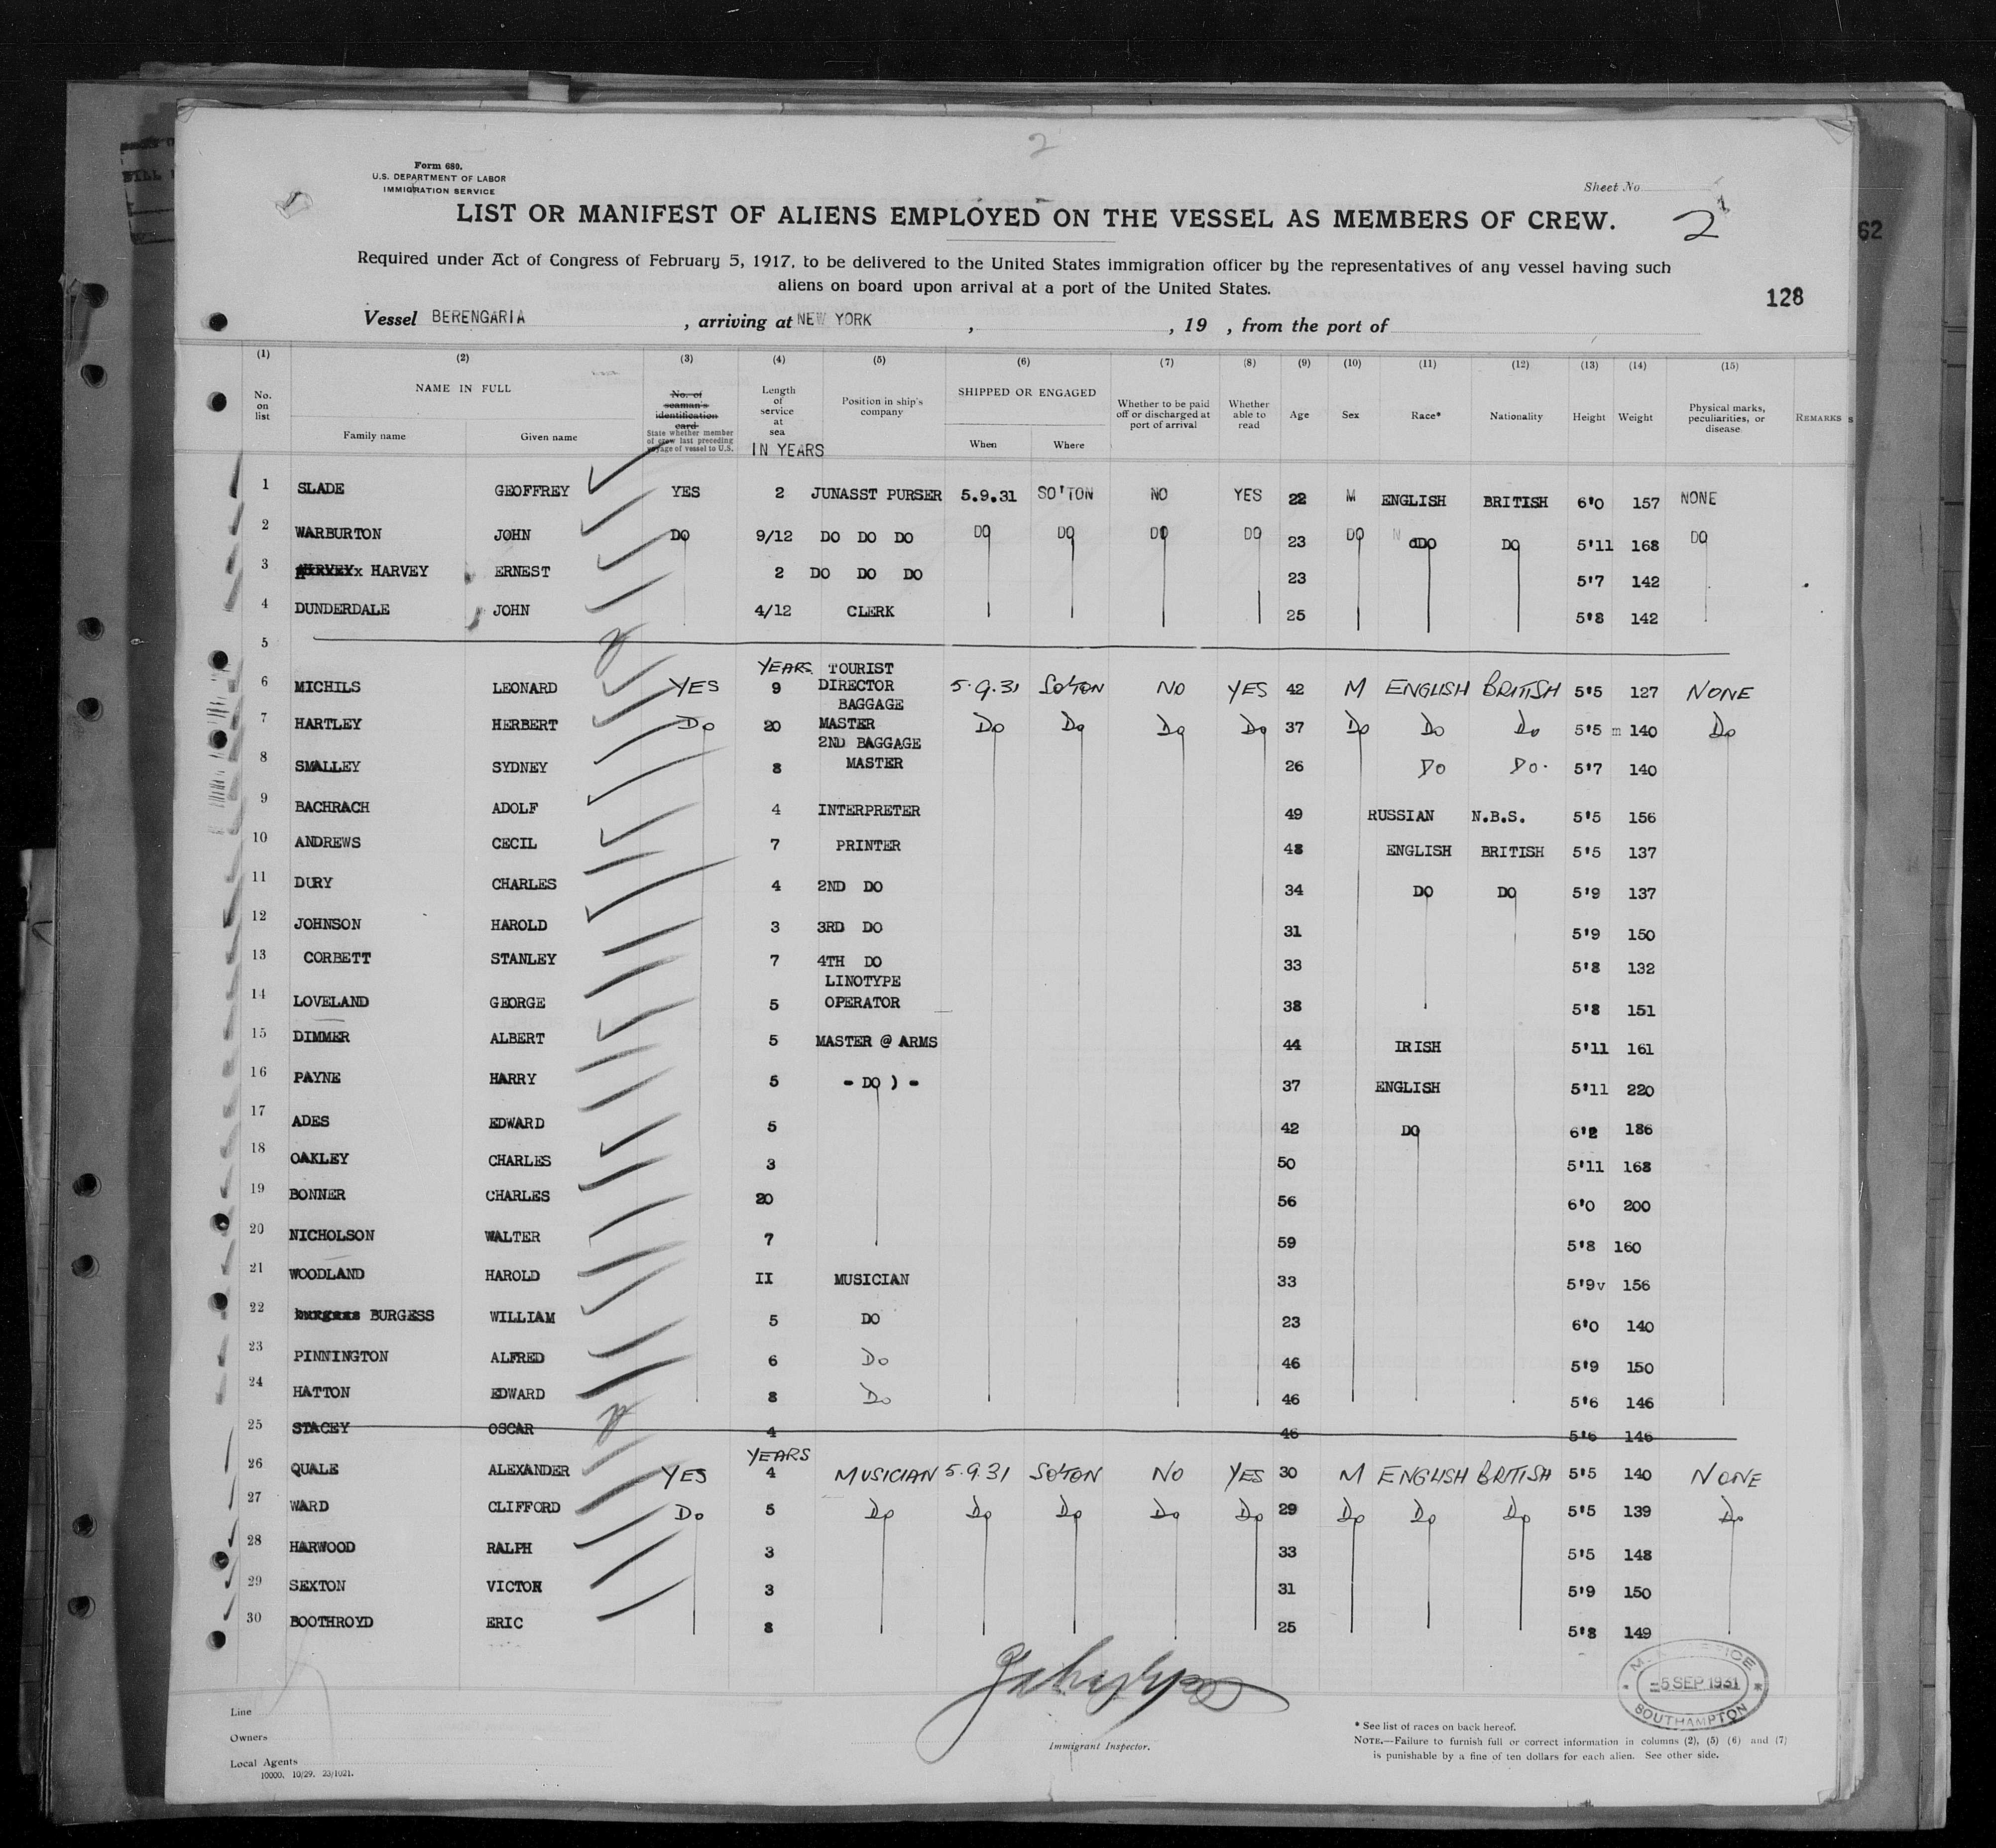 2
Form 680.
U.S. DEPARTMENT OF LABOR
IMMIGRATION SERVICE
Sheet No
LIST OR MANIFEST OF ALIENS EMPLOYED ON THE VESSEL AS MEMBERS OF CREW.
2
62
Required under Act of Congress of February 5, 1917, to be delivered to the United States immigration officer by the representatives of any vessel having such
aliens on board upon arrival at a port of the United States.
128
Vessel BERENGARIA, arriving at NEW YORK, , 19 , from the port of
(1) (2) (3) (4) (5) (6) (7) (8) (9) (10) (11) (12) (13) (14) (15)
No. on list NAME IN FULL Family name Given name No. of seaman's identification card State whether member of crew last preceding voyage of vessel to U.S. Length of service at sea IN YEARS Position in ship's company SHIPPED OR ENGAGED When Where Whether to be paid off or discharged at port of arrival Whether able to read Age Sex Race* Nationality Height Weight Physical marks, peculiarities, or disease REMARKS
1 SLADE GEOFFREY YES 2 JUNASST PURSER 5.9.31 SO'TON NO YES 22 M ENGLISH BRITISH 6'0 157 NONE
2 WARBURTON JOHN DO 9/12 DO DO DO DO DO DO DO 23 DO DO DO 5'11 168 DO
3 HARVEY ERNEST 2 DO DO DO 23 5'7 142
4 DUNDERDALE JOHN 4/12 CLERK 25 5'8 142
5
6 MICHILS LEONARD YES YEARS 9 TOURIST DIRECTOR 5.9.31 SO'TON NO YES 42 M ENGLISH BRITISH 5'5 127 NONE
7 HARTLEY HERBERT Do 20 BAGGAGE MASTER Do Do Do Do 37 Do Do Do 5'5 m 140 Do
8 SMALLEY SYDNEY 8 2ND BAGGAGE MASTER 26 Do Do. 5'7 140
9 BACHRACH ADOLF 4 INTERPRETER 49 RUSSIAN N.B.S. 5'5 156
10 ANDREWS CECIL 7 PRINTER 48 ENGLISH BRITISH 5'5 137
11 DURY CHARLES 4 2ND DO 34 DO DO 5'9 137
12 JOHNSON HAROLD 3 3RD DO 31 5'9 150
13 CORBETT STANLEY 7 4TH DO 33 5'8 132
14 LOVELAND GEORGE 5 LINOTYPE OPERATOR 38 5'8 151
15 DIMMER ALBERT 5 MASTER @ ARMS 44 IRISH 5'11 161
16 PAYNE HARRY 5 - DO ) - 37 ENGLISH 5'11 220
17 ADES EDWARD 5 42 DO 6'2 186
18 OAKLEY CHARLES 3 50 5'11 168
19 BONNER CHARLES 20 56 6'0 200
20 NICHOLSON WALTER 7 59 5'8 160
21 WOODLAND HAROLD II MUSICIAN 33 5'9v 156
22 burgess BURGESS WILLIAM 5 DO 23 6'0 140
23 PINNINGTON ALFRED 6 Do 46 5'9 150
24 HATTON EDWARD 8 Do 46 5'6 146
25 STACEY OSCAR 4 46 5'6 146
26 QUALE ALEXANDER YES YEARS 4 MUSICIAN 5.9.31 SO'TON NO YES 30 M ENGLISH BRITISH 5'5 140 NONE
27 WARD CLIFFORD Do 5 Do Do Do Do Do 29 Do Do Do 5'5 139 Do
28 HARWOOD RALPH 3 33 5'5 148
29 SEXTON VICTOR 3 31 5'9 150
30 BOOTHROYD ERIC 8 25 5'8 149
-5 SEP 1931
SOUTHAMPTON
Line
Owners
Local Agents
10000. 10/29. 23/1021.
Immigrant Inspector.
* See list of races on back hereof.
NOTE.—Failure to furnish full or correct information in columns (2), (5) (6) and (7)
is punishable by a fine of ten dollars for each alien. See other side.